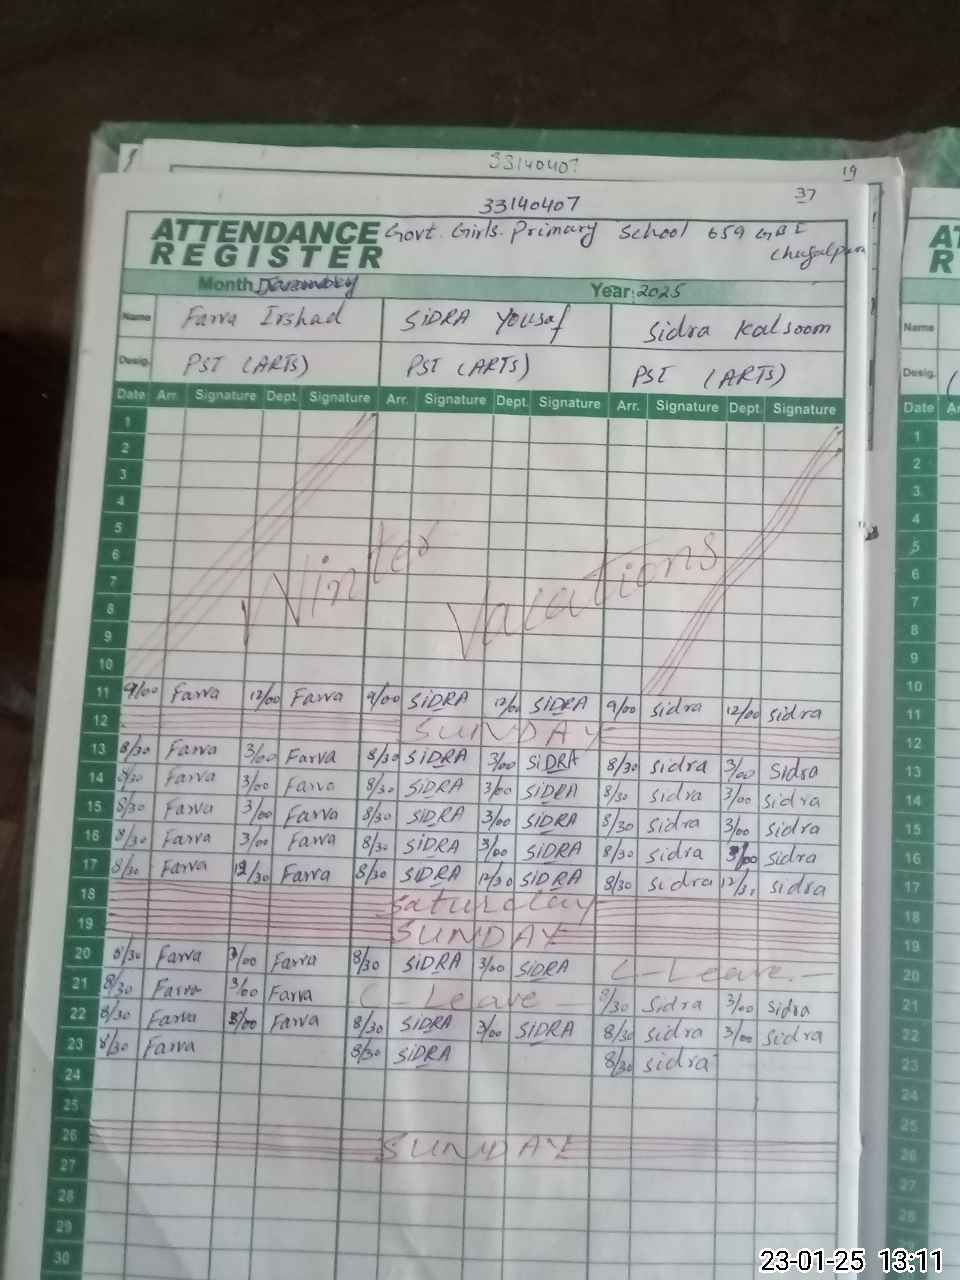 33140407
19
37
33140407
ATTENDANCE REGISTER Govt. Girls. Primary School 659 GB I
Month Year: 2025
Name Farva Irshad SiDRA Yousaf Sidra Kalsoom
Desig. PST (ARTs) PST (ARTs) PST (ARTs)
Date Arr. Signature Dept. Signature Arr. Signature Dept. Signature Arr. Signature Dept. Signature
1
2
3
4
5
6
7
8
9
10
Winter Vacations
11 9/00 Farva 12/00 Farva 9/00 SiDRA 12/00 SiDRA 9/00 sidra 12/00 sidra
12 SUNDAY
13 8/30 Farva 3/00 Farva 8/30 SiDRA 3/00 SiDRA 8/30 sidra 3/00 Sidra
14 8/30 Farva 3/00 Farva 8/30 SiDRA 3/00 SiDRA 8/30 sidra 3/00 sidra
15 8/30 Farva 3/00 Farva 8/30 SiDRA 3/00 SiDRA 8/30 sidra 3/00 sidra
16 8/30 Farva 3/00 Farva 8/30 SiDRA 3/00 SiDRA 8/30 sidra 3/00 sidra
17 8/30 Farva 12/30 Farva 8/30 SiDRA 12/30 SiDRA 8/30 sidra 12/30 sidra
18 Saturday
19 SUNDAY
20 8/30 Farva 3/00 Farva 8/30 SiDRA 3/00 SiDRA C-Leave
21 8/30 Farva 3/00 Farva C-Leave 8/30 Sidra 3/00 Sidra
22 8/30 Farva 3/00 Farva 8/30 SiDRA 3/00 SiDRA 8/30 sidra 3/00 sidra
23 8/30 Farva 8/30 SiDRA 8/30 sidra
24
25
26 SUNDAY
27
28
29
30
Name
Desig.
Date
1
2
3
4
5
6
7
8
9
10
11
12
13
14
15
16
17
18
19
20
21
22
23
24
25
26
27
28
23-01-25 13:11